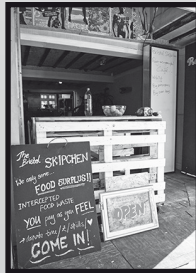 The Bristol SKIPCHEN
We only serve...
FOOD SURPLUS!!
INTERCEPTED
FOOD WASTE
YOU pay as you FEEL
→ donate time/£/skills ♥
COME IN!
OPEN